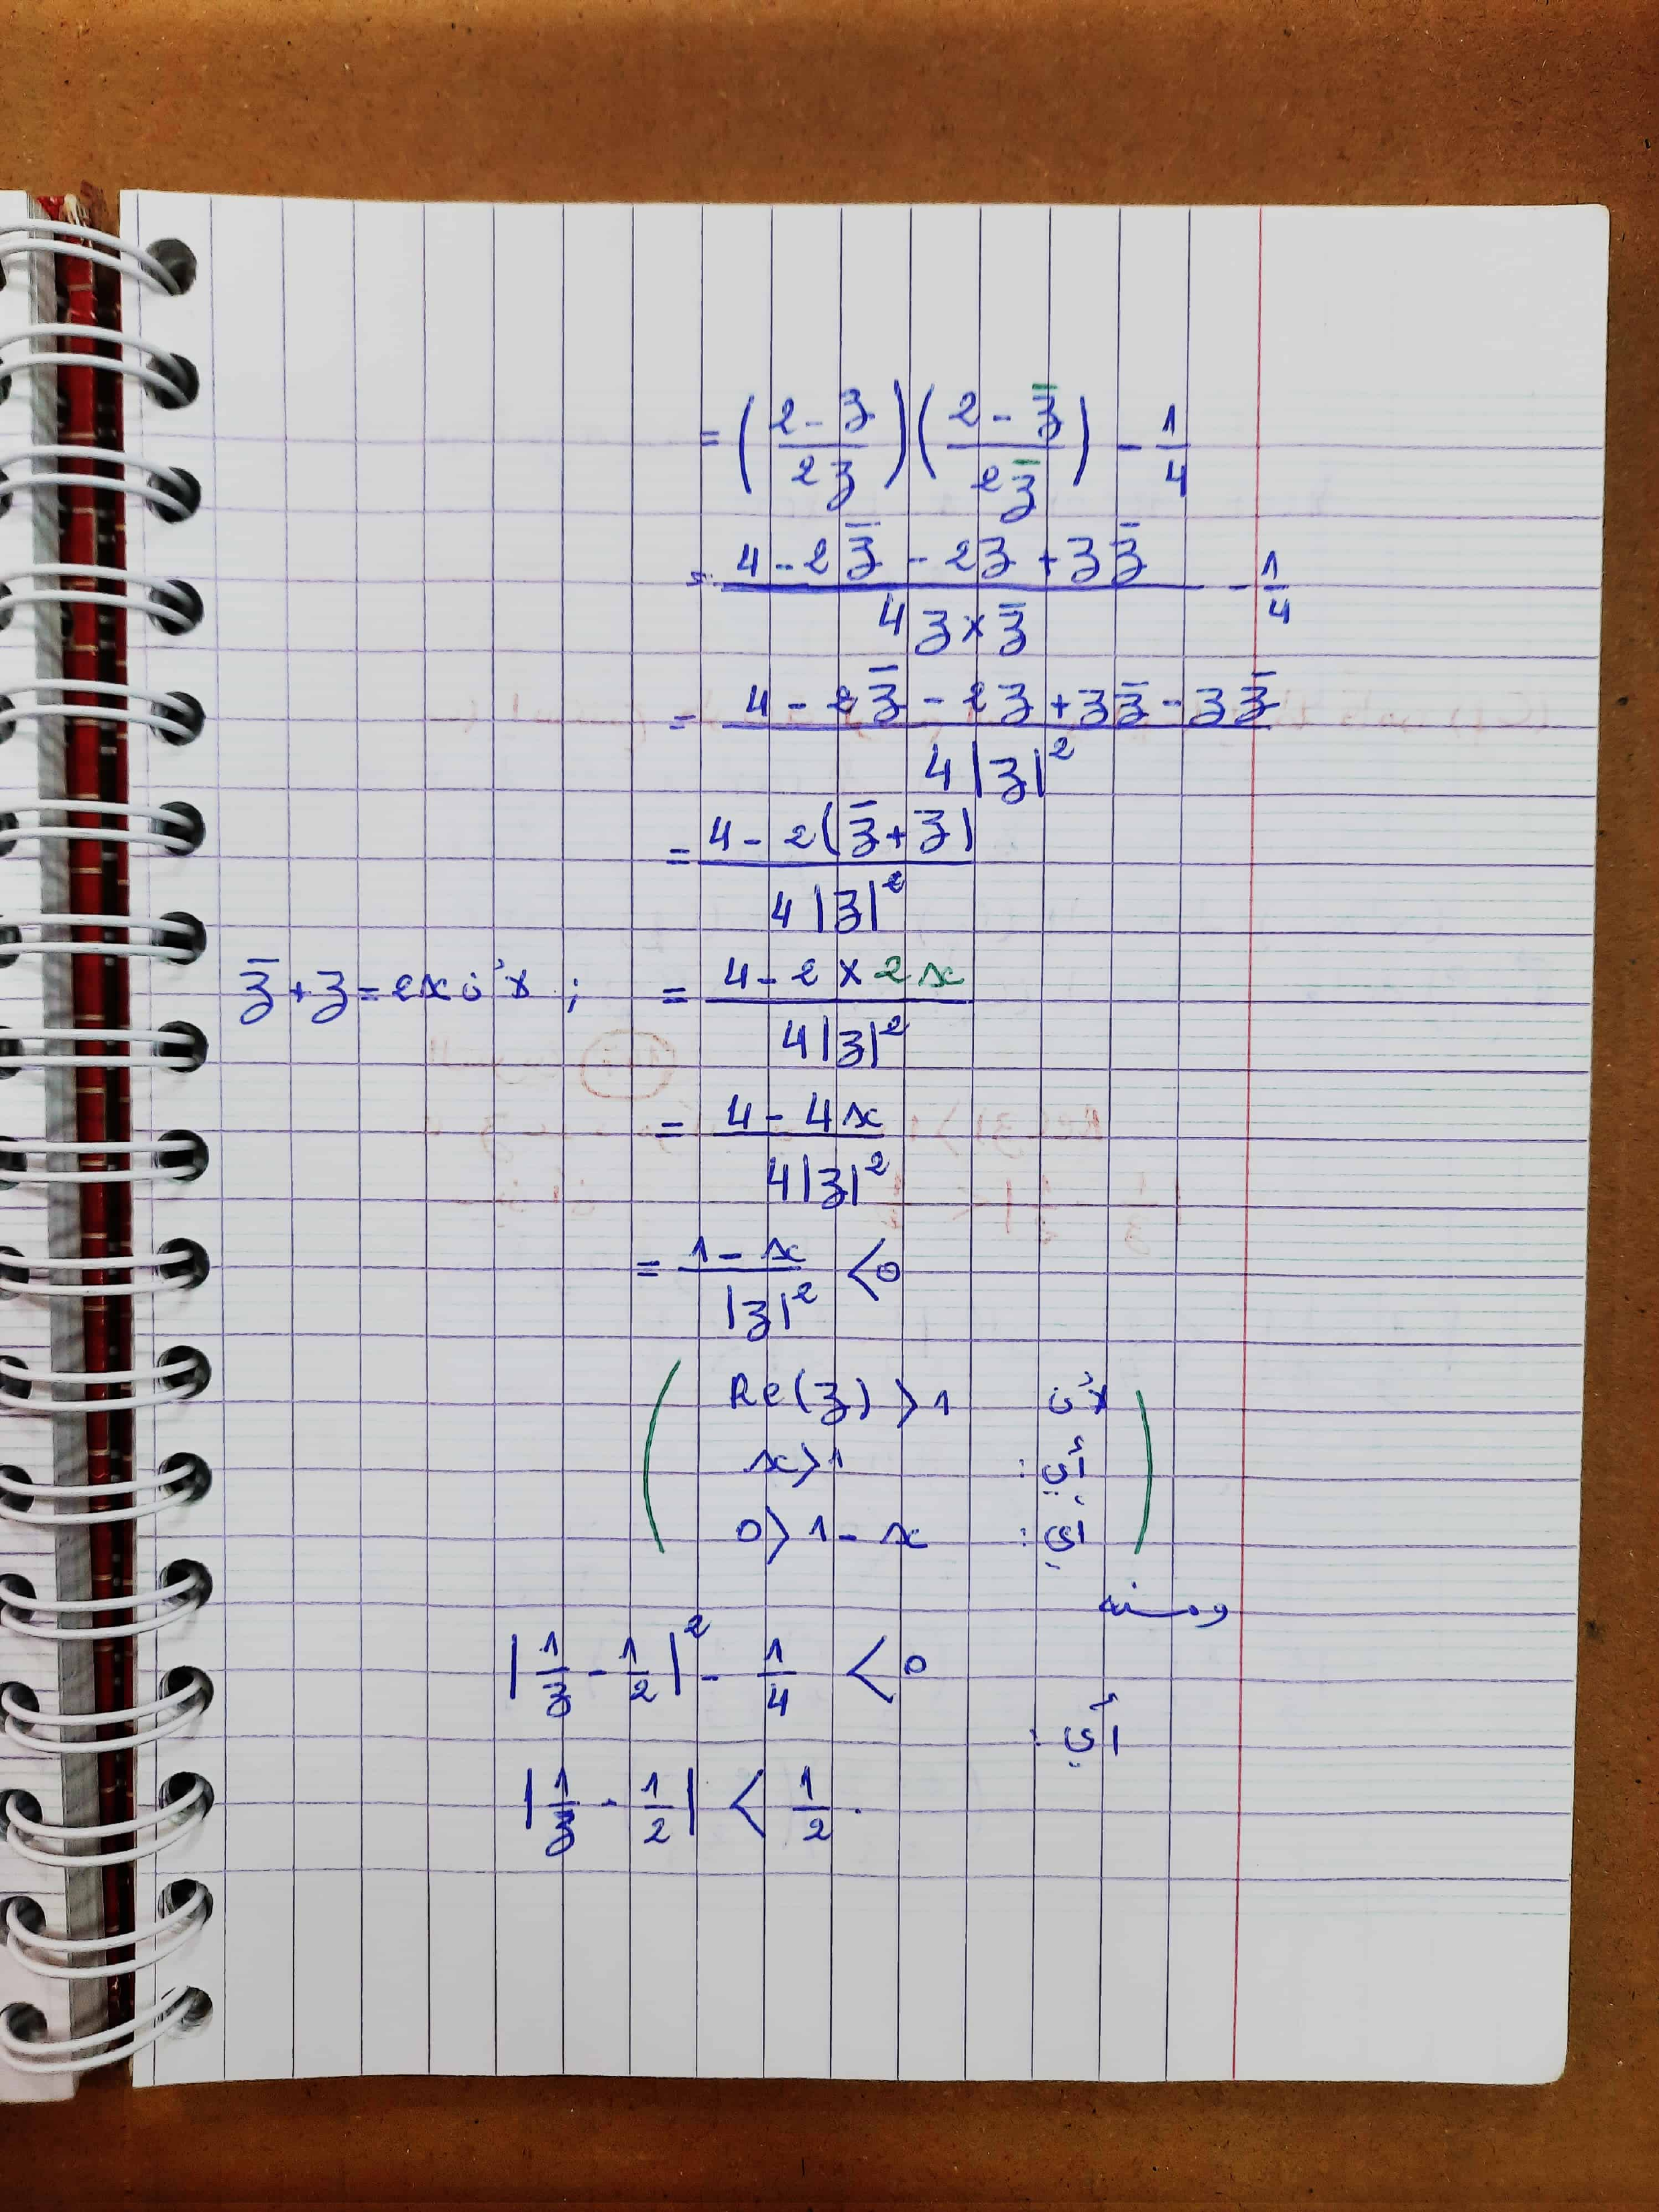 = ( (2 - z) / (2z) ) ( (2 - z̄) / (2z̄) ) - 1/4
= (4 - 2z̄ - 2z + zz̄) / (4z × z̄) - 1/4
= (4 - 2z̄ - 2z + zz̄ - zz̄) / (4|z|²)
= (4 - 2(z̄ + z)) / (4|z|²)
= (4 - 2 × 2x) / (4|z|²) ; لأن z̄ + z = 2x
= (4 - 4x) / (4|z|²)
= (1 - x) / |z|² < 0
لأن Re(z) > 1
أي : x > 1
أي : 0 > 1 - x
ومنه
|1/z - 1/2|² - 1/4 < 0
أي :
|1/z - 1/2| < 1/2 .